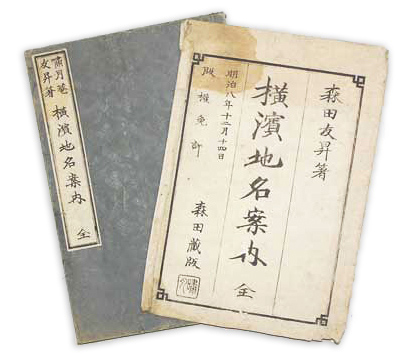 嘯月菴
友昇著
横濱地名案内
全
森田友昇著
横濱地名案内
全
明治八年十二月十四日
版權免許
森田藏版